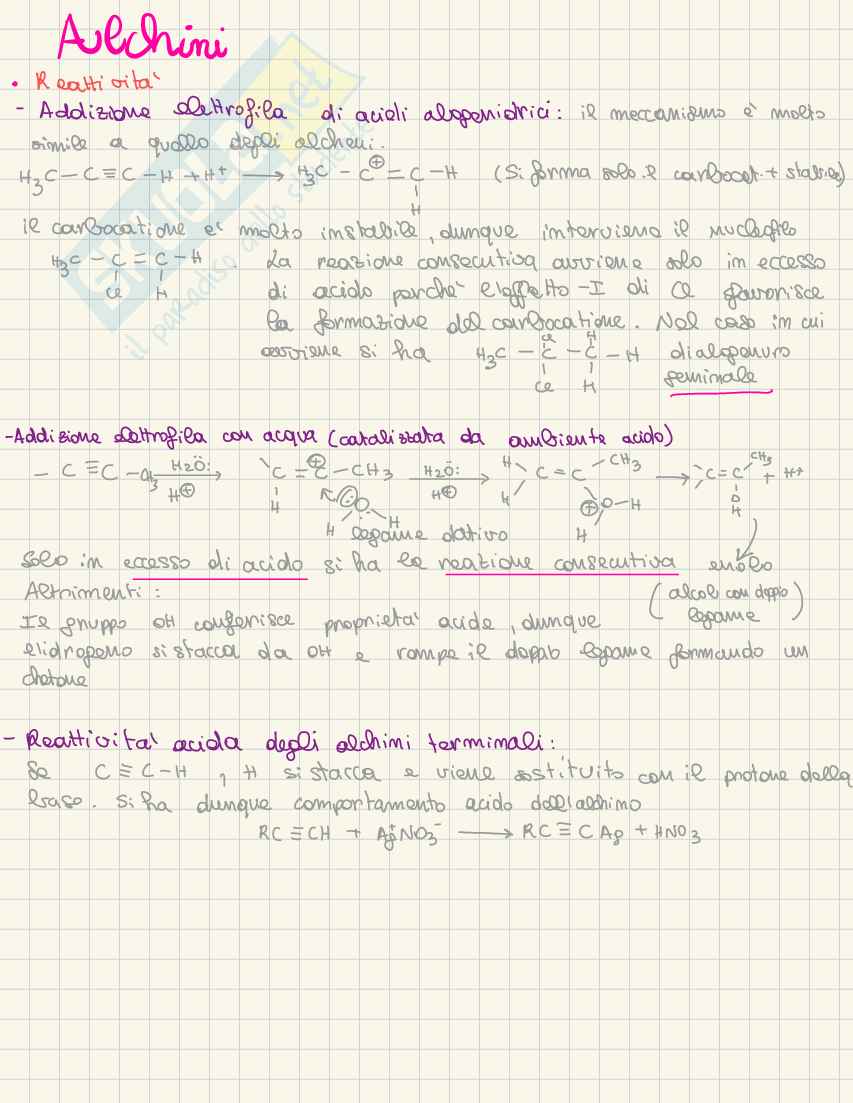 Alchini
• Reattività
- Addizione elettrofila di acidi alogenidrici: il meccanismo è molto
simile a quello degli alcheni.
H3C - C ≡ C - H + H+ → H3C - C⊕ = C - H (Si forma solo il carbocat. + stabile)
H
il carbocatione è molto instabile, dunque interviene il nucleofilo
H3C - C = C - H . La reazione consecutiva avviene solo in eccesso
Cl H di acido perché l'effetto -I di Cl favorisce
la formazione del carbocatione. Nel caso in cui
Cl H
avviene si ha H3C - C - C - H dialogenuro
Cl H geminale
- Addizione elettrofila con acqua (catalizzata da ambiente acido)
- C ≡ C - CH3 H2Ö: H⊕ → C = C⊕ - CH3 H2Ö: H⊕ → H C = C CH3 → C = C CH3 + H+
H H O H H ⊕ O - H H O H
legame dativo
Solo in eccesso di acido si ha la reazione consecutiva enolo
Altrimenti: (alcol con doppio
legame)
Il gruppo OH conferisce proprietà acide, dunque
l'idrogeno si stacca da OH e rompe il doppio legame formando un
chetone
- Reattività acida degli alchini terminali:
Se C ≡ C - H , H si stacca e viene sostituito con il protone della
base. Si ha dunque comportamento acido dell'alchino
RC ≡ CH + Ag+NO3- → RC ≡ C Ag + HNO3
SKUOLA.net
il paradiso dello studente